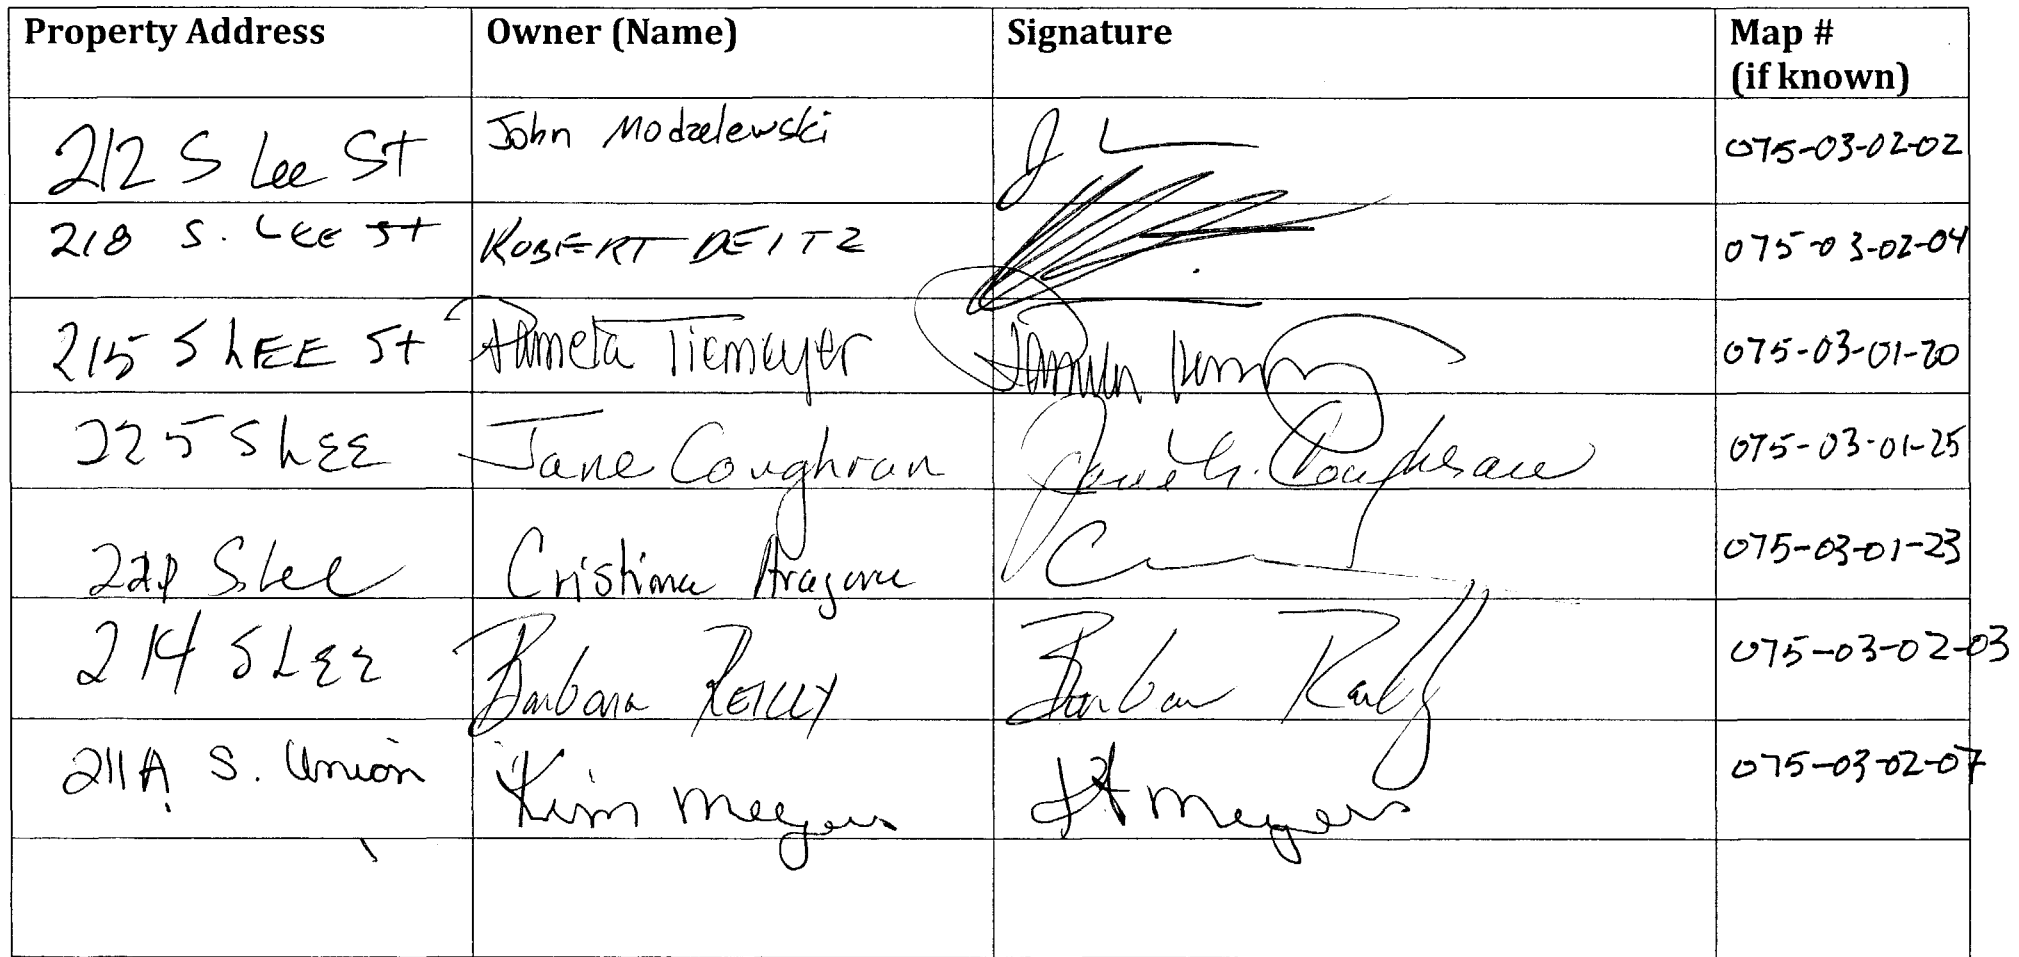 Property Address Owner (Name) Signature Map #
(if known)
212 S Lee St John Modzelewski 075-03-02-02
218 S. LEE ST ROBERT DEITZ 075-03-02-04
215 S LEE St Pamela Tiemeyer 075-03-01-20
225 S LEE Jane Coughran Jane G. Coughran 075-03-01-25
S. Lee Cristina 075-03-01-23
214 S LEE Barbara REILLY Barbara Reilly 075-03-02-03
211A S. Union Kim Meyers K A Meyers 075-03-02-07